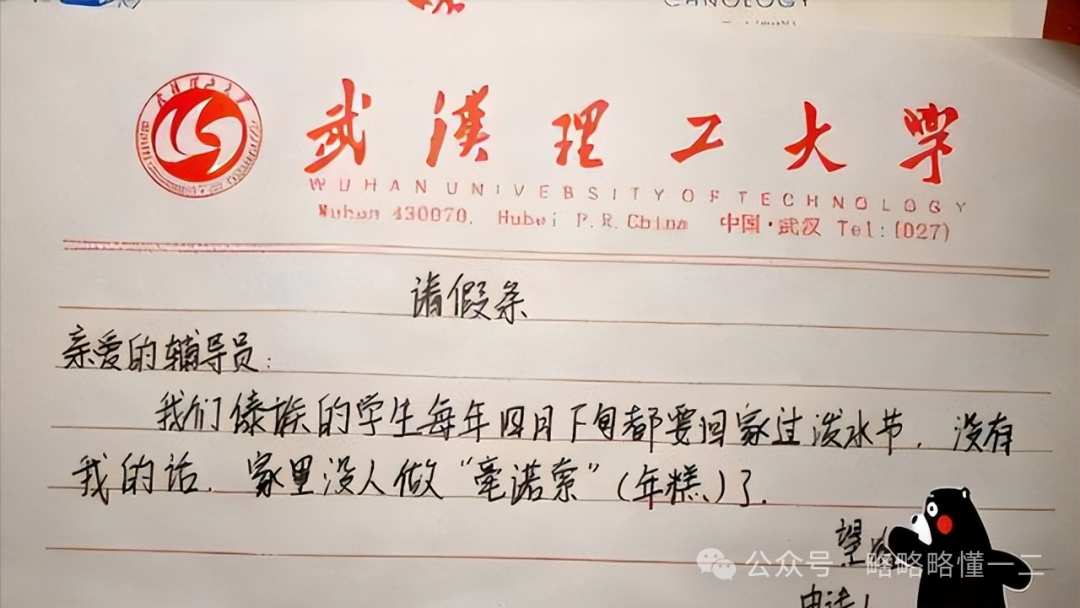 CHNOLOGY
武漢理工大学
WUHAN UNIVEBSITY OF TECHNOLOGY
Wuhan 430070. Hubei P.R.China 中国·武汉 Tel:(027)
请假条
亲爱的辅导员:
我们傣族的学生每年四月下旬都要回家过泼水节，没有
我的话，家里没人做“毫诺索”(年糕)了.
望
公众号·略略略懂一二